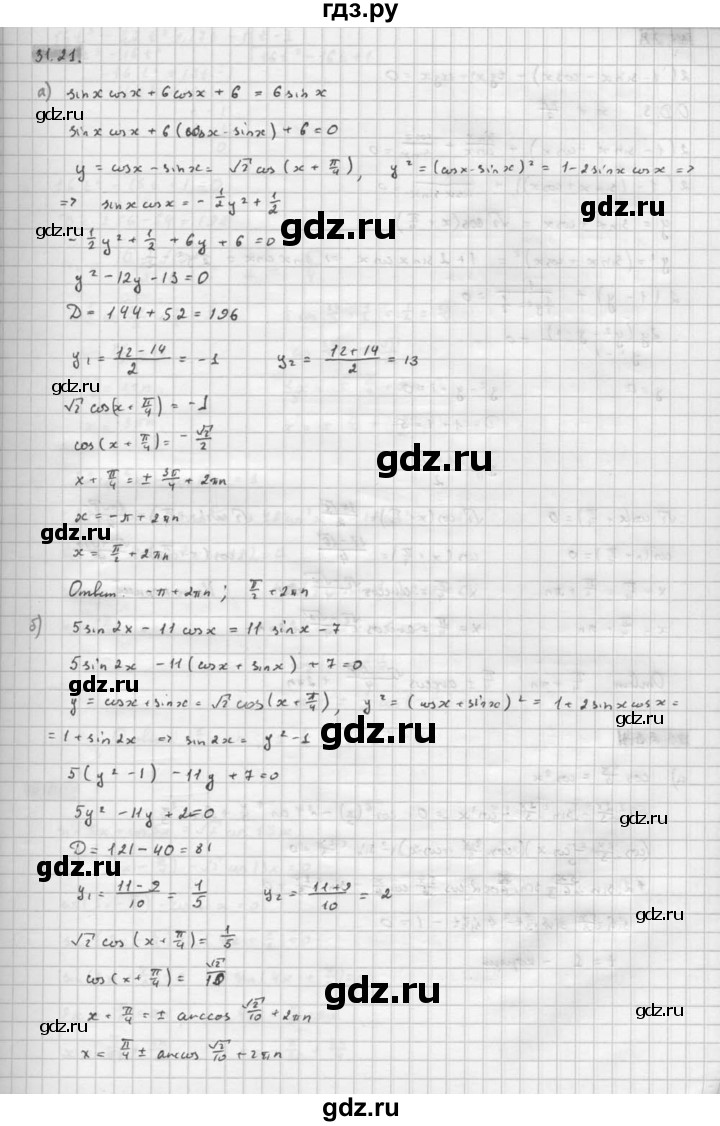 гдз.ру
31.21.
а) sinx cosx + 6cosx + 6 = 6 sinx
gdz.ru
gdz.ru
sinx cosx + 6(cosx - sinx) + 6 = 0
y = cosx - sinx = √2 cos(x + π/4), y² = (cosx - sinx)² = 1 - 2sinx cosx =>
=> sinx cosx = - 1/2 y² + 1/2
gdz.ru
gdz.ru
gdz.ru
- 1/2 y² + 1/2 + 6y + 6 = 0
y² - 12y - 13 = 0
D = 144 + 52 = 196
y₁ = (12 - 14)/2 = -1 y₂ = (12 + 14)/2 = 13
gdz.ru
√2 cos(x + π/4) = -1
cos(x + π/4) = - √2/2
gdz.ru
gdz.ru
x + π/4 = ± 3π/4 + 2πn
x = -π + 2πn
gdz.ru
gdz.ru
x = π/2 + 2πn
Ответ: -π + 2πn; π/2 + 2πn
б) 5sin2x - 11cosx = 11 sinx - 7
5sin2x - 11(cosx + sinx) + 7 = 0
gdz.ru
y = cosx + sinx = √2 cos(x + π/4), y² = (cosx + sinx)² = 1 + 2sinx cosx =
gdz.ru
= 1 + sin2x => sin2x = y² - 1
gdz.ru
5(y² - 1) - 11y + 7 = 0
5y² - 11y + 2 = 0
gdz.ru
D = 121 - 40 = 81
gdz.ru
y₁ = (11 - 9)/10 = 1/5 y₂ = (11 + 9)/10 = 2
√2 cos(x + π/4) = 1/5
cos(x + π/4) = √2/10
gdz.ru
gdz.ru
x + π/4 = ± arccos √2/10 + 2πn
x = π/4 ± arccos √2/10 + 2πn
gdz.ru
gdz.ru
gdz.ru